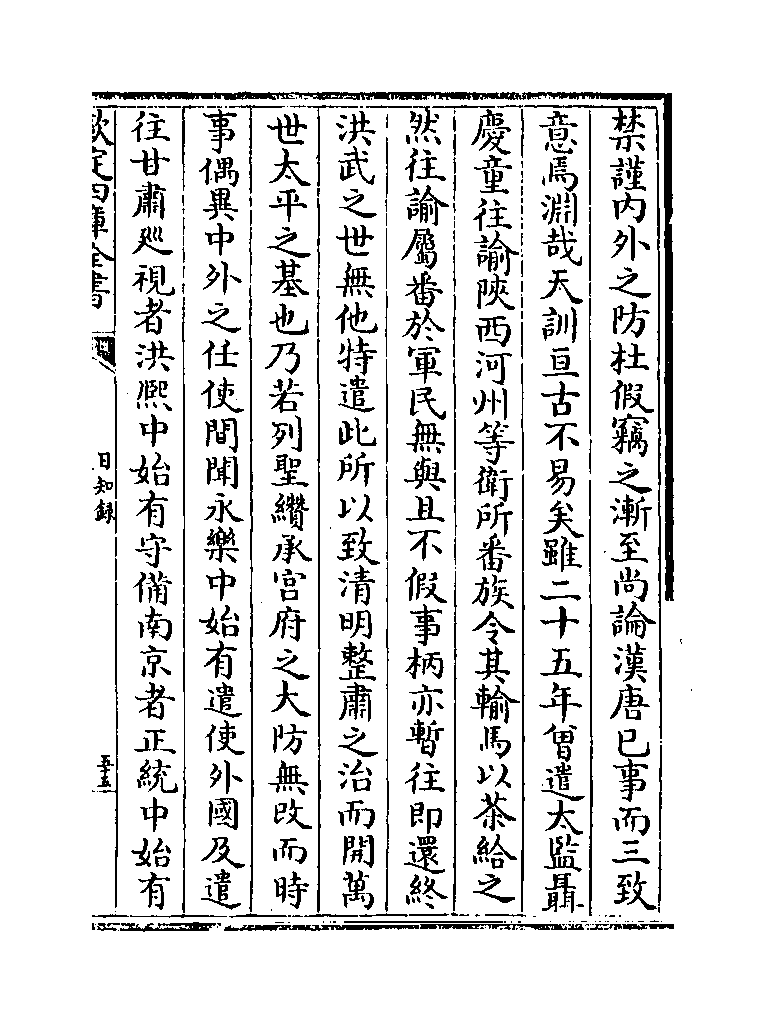 禁謹内外之防杜假竊之漸至尚論漢唐已事而三致
意焉淵哉天訓亘古不易矣雖二十五年曾遣太監聶
慶童往諭陜西河州等衛所番族令其輸馬以茶給之
然往諭屬番於軍民無與且不假事柄亦暫往即還終
洪武之世無他特遣此所以致清明整肅之治而開萬
世太平之基也乃若列聖纘承宫府之大防無改而時
事偶異中外之任使間聞永樂中始有遣使外國及遣
往甘肅廵視者洪熙中始有守備南京者正統中始有
欽定四庫全書
日知錄
五十五